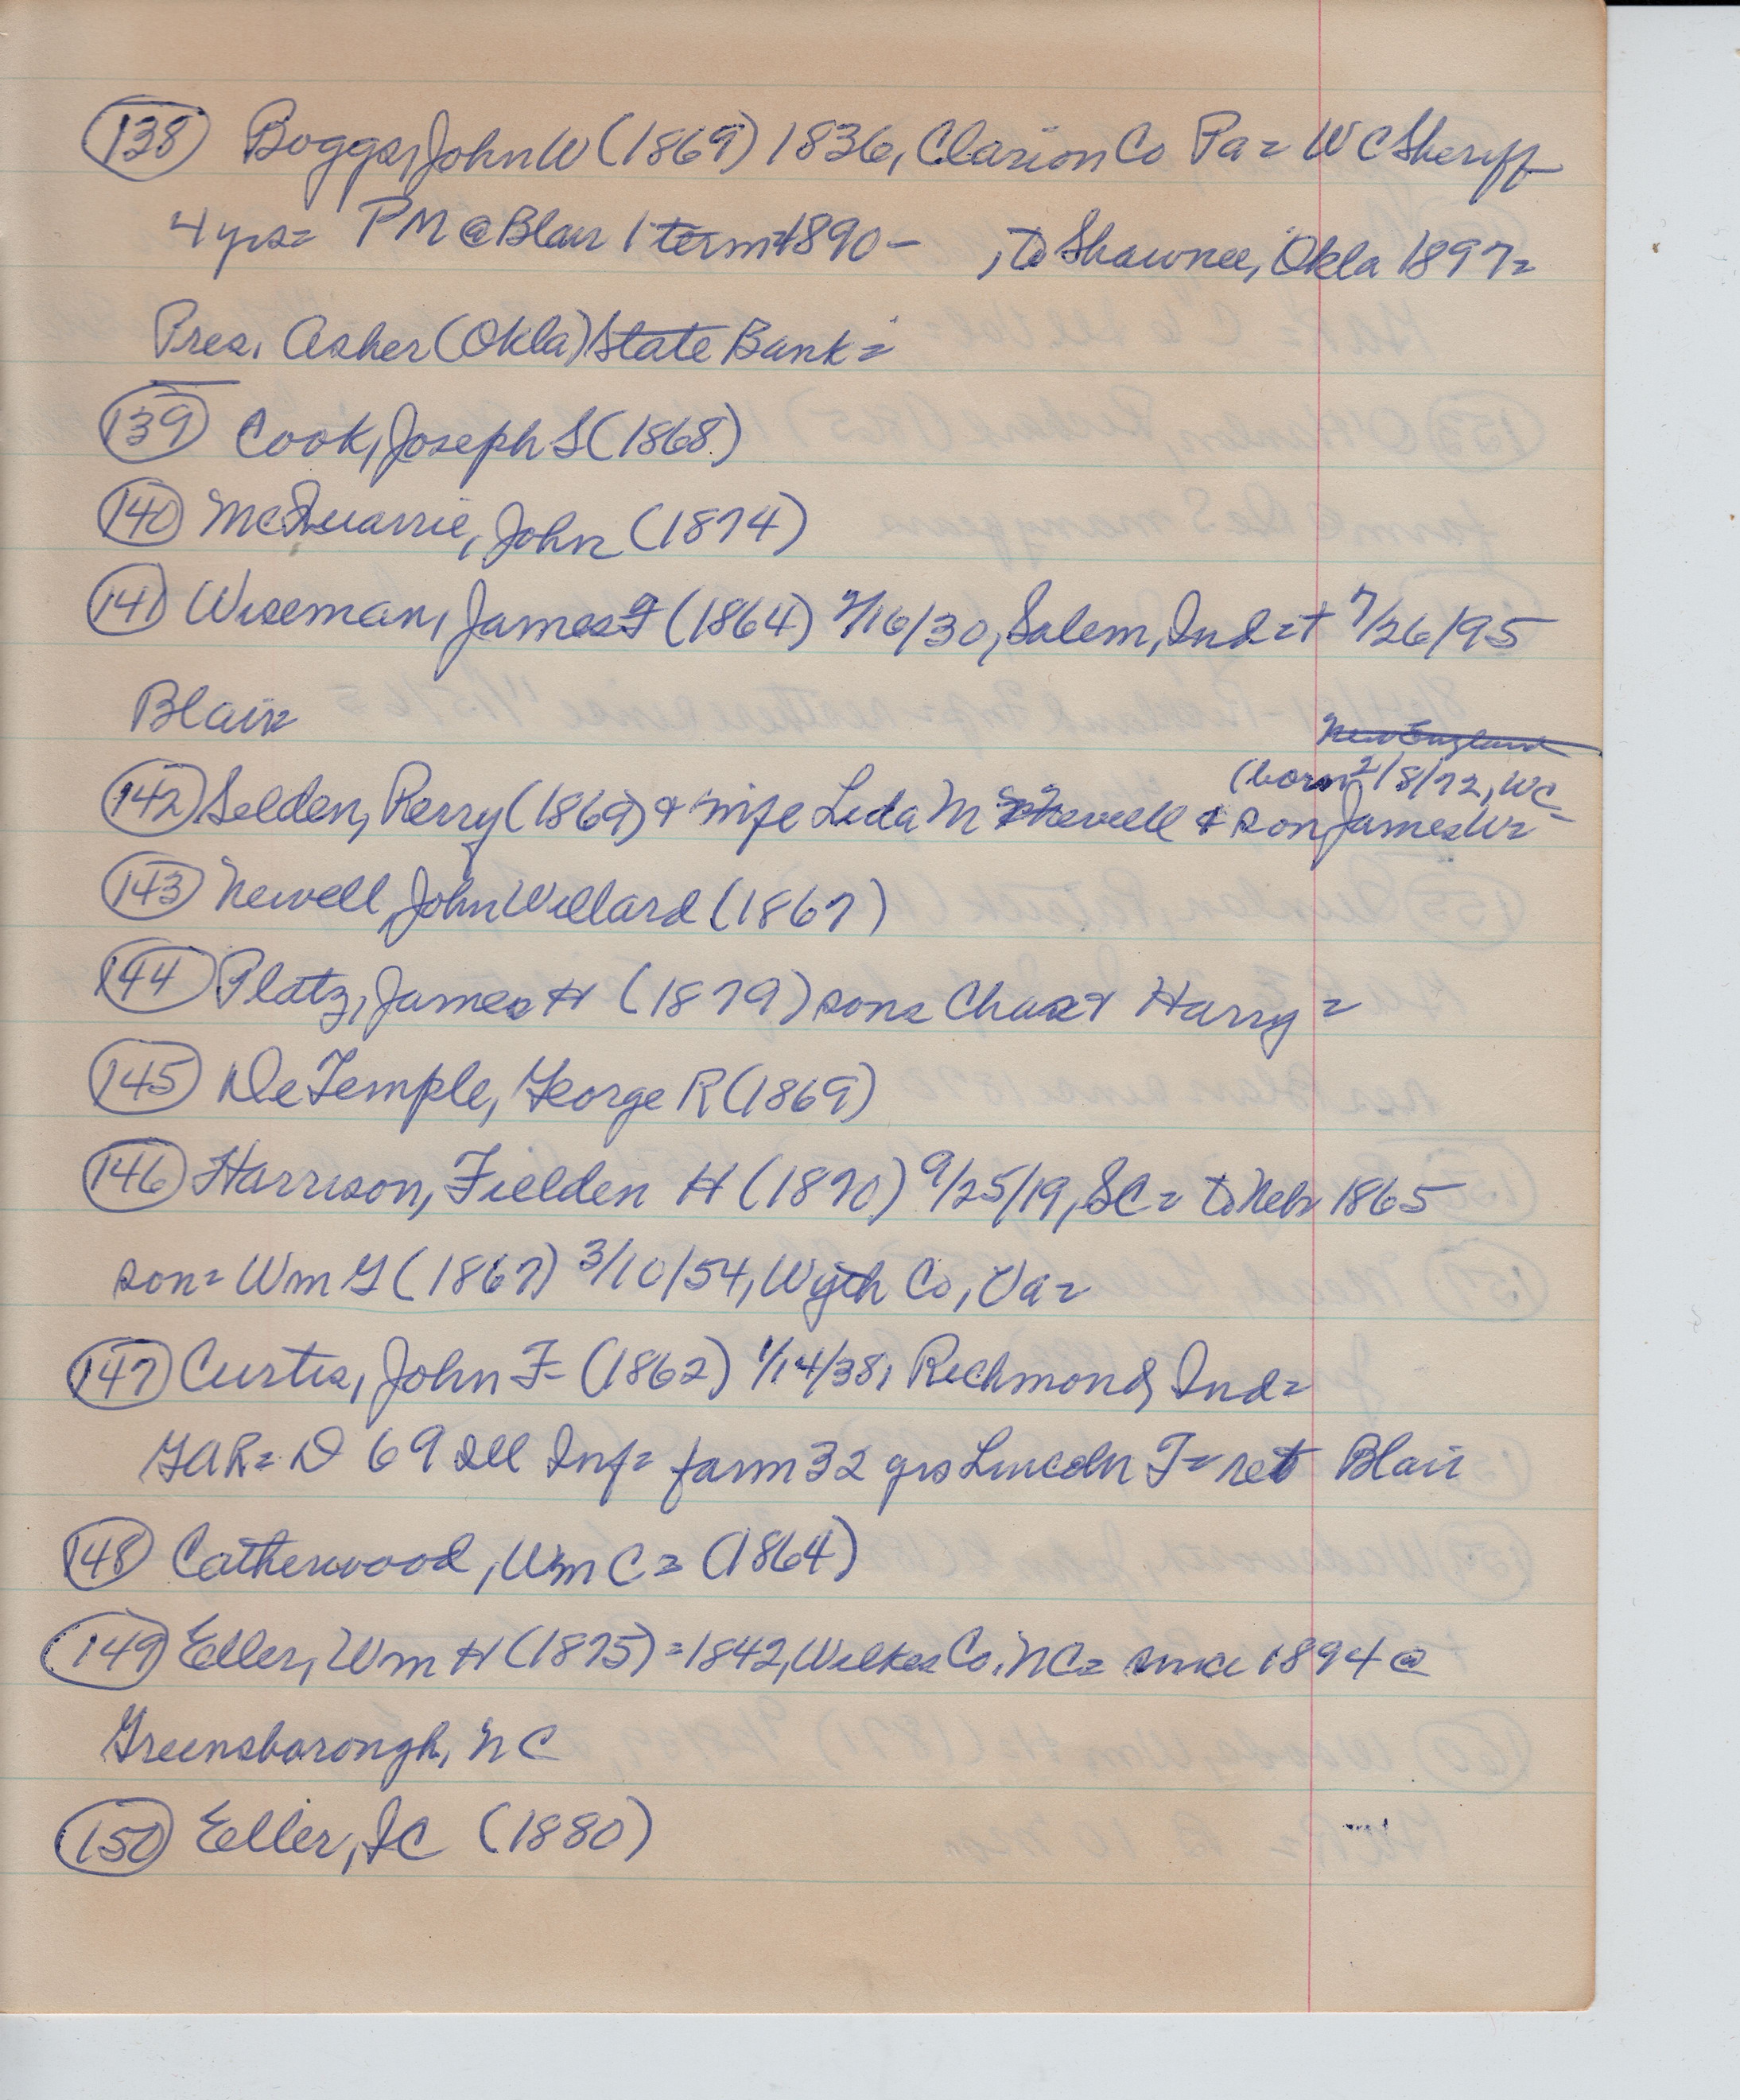 138 Boggs, John W (1869) 1836, Clarion Co Pa = WC Sheriff
4 yrs = PM @ Blair 1 term 1890 - , to Shawnee, Okla 1897 =
Pres. Asher (Okla) State Bank =
139 Cook, Joseph S (1868)
140 McQuarrie, John (1874)
141 Wiseman, James (1864) 7/16/30, Salem, Ind = + 7/26/95
Blair
New England
(born 2/8/72, WC =
142 Selden, Perry (1869) & wife Leda M & son James W =
143 Newell, John Willard (1867)
144 Platz, James H (1879) sons Chas & Harry =
145 DeTemple, George R (1869)
146 Harrison, Fielden H (1870) 9/25/19, SC = to Nebr 1865
son = Wm G (1867) 3/10/54, Wyth Co, Va =
147 Curtis, John F - (1862) 1/14/38, Richmond, Ind =
GAR = D 69 Ill Inf = farm 32 yrs Lincoln T = ret Blair
148 Catherwood, Wm C = (1864)
149 Eller, Wm H (1875) = 1842, Wilkes Co, NC = since 1894 @
Greensborough, NC
150 Eller, JC (1880)